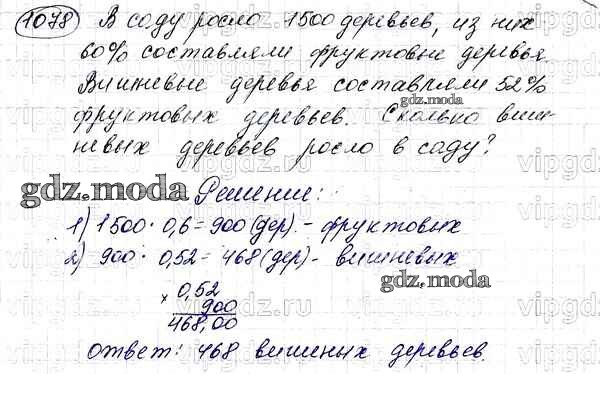 1078 В саду росло 1500 деревьев, из них
60% составляли фруктовые деревья.
Вишневые деревья составляли 52%
gdz.moda
фруктовых деревьев. Сколько виш-
невых деревьев росло в саду?
gdz.moda
Решение:
1) 1500 · 0,6 = 900 (дер.) - фруктовых
2) 900 · 0,52 = 468 (дер) - вишневых
gdz.moda
× 0,52
900
468,00
Ответ: 468 вишеных деревьев.